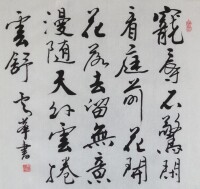 寵辱不驚閒
看庭前花開
花落去留無意
漫隨天外雲捲
雲舒 安華書